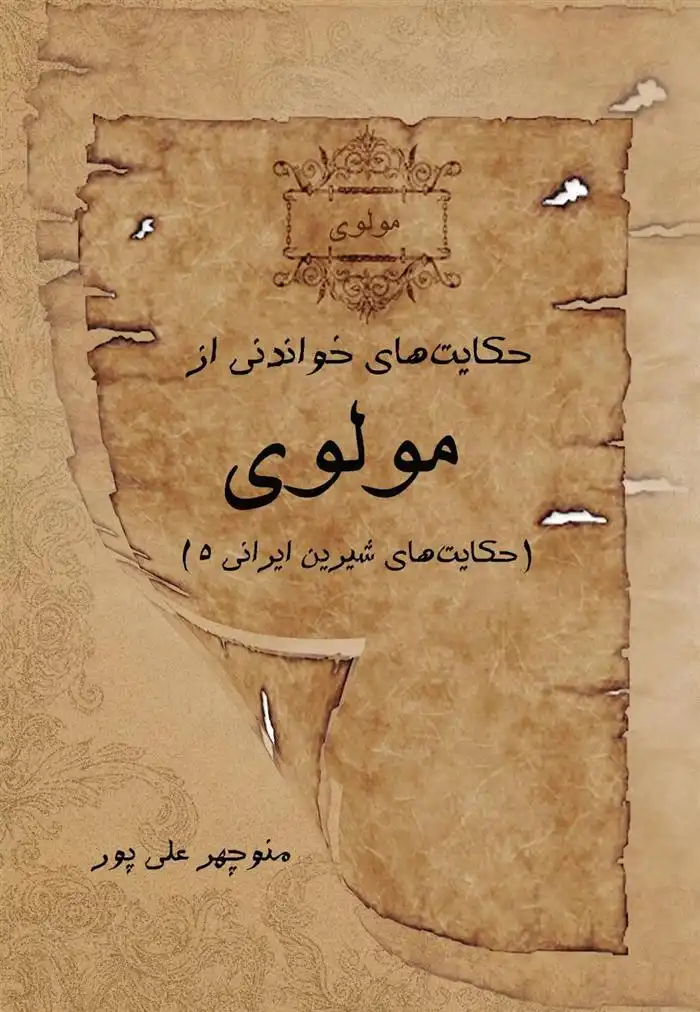 مولوی
حکایت‌های خواندنی از
مولوی
(حکایت‌های شیرین ایرانی ۵)
منوچهر علی پور